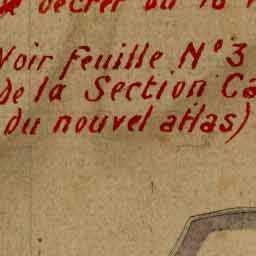 décret du 10
Voir feuille N° 3
de la Section Ca
du nouvel atlas)